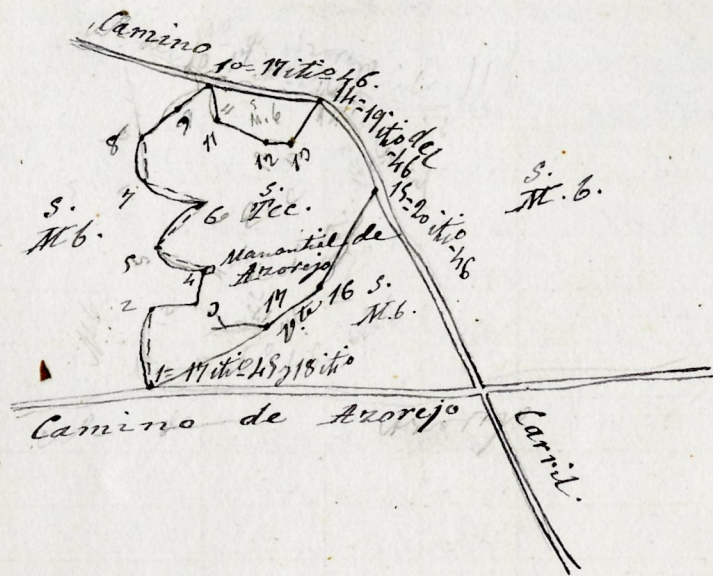 Camino
10=17 itio 46.
14=19 itio del 46
15=20 itio 46
S.
M.b.
8
9
11
12
13
7
6
S.
S.
M.b.
S.
M.b.
5
4
Manantial de
Azorejo
2
3
17
16
S.
M.b.
1=17 itio 45 y 18 itio
Camino de Azorejo
Carril.